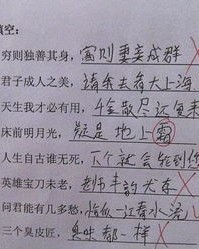 填空：
穷则独善其身，富则妻妾成群
君子成人之美，请你去看大上海
天生我才必有用，千金散尽还复来
床前明月光，疑是地上霜
人生自古谁无死，下个就轮到你
英雄宝刀未老，老师丰韵犹存
问君能有几多愁，恰似一江春水流
三个臭皮匠，臭味都一样